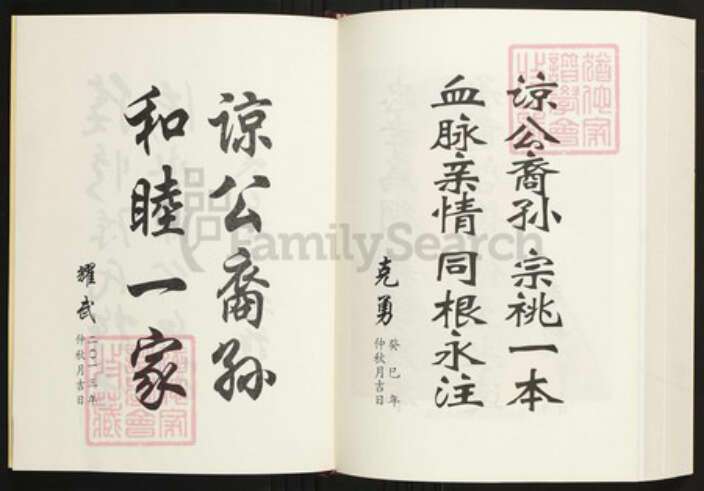 谅公裔孙 宗祧一本
血脉亲情 同根永注
克勇
癸巳年
仲秋月吉日
谅公裔孙
和睦一家
耀武
二〇一三年
仲秋月吉日
FamilySearch